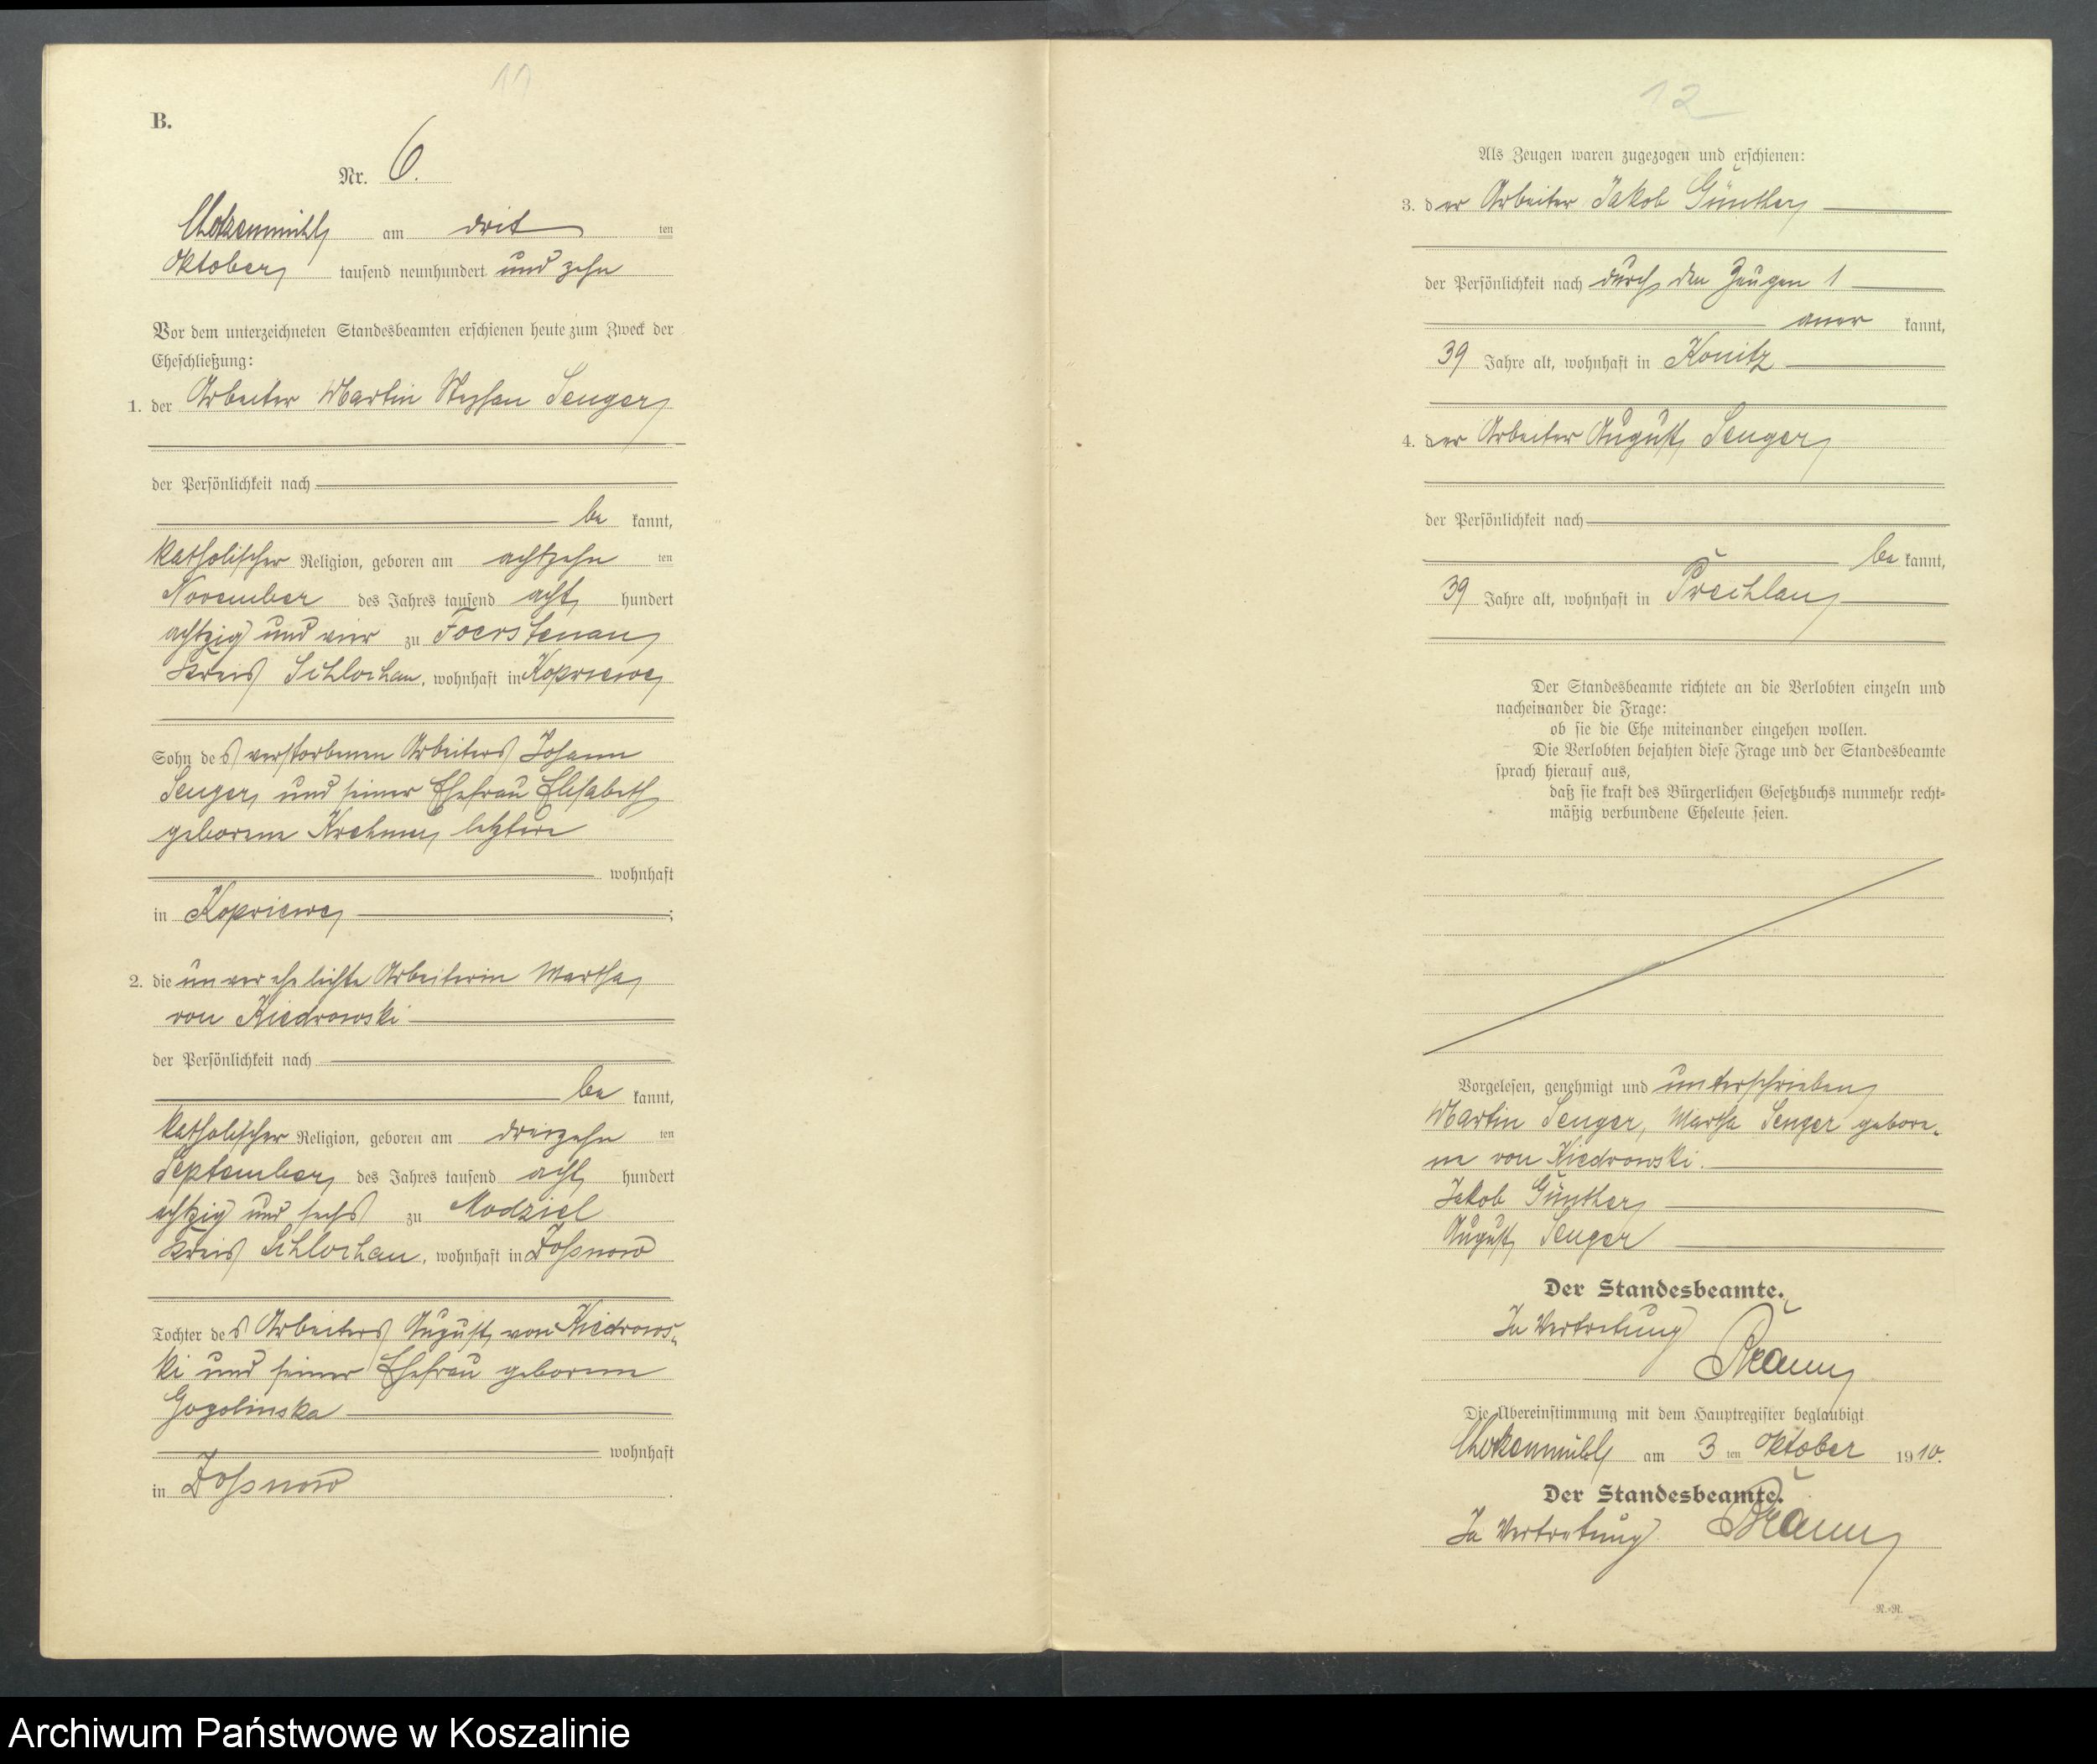 11
B.
Nr. 6.
Chotzenmühl am drit ten
Oktober tausend neunhundert und zehn
Vor dem unterzeichneten Standesbeamten erschienen heute zum Zweck der
Eheschließung:
1. der Arbeiter Martin Stephan Senger
der Persönlichkeit nach
be kannt,
katholischer Religion, geboren am achtzehn ten
November des Jahres tausend acht hundert
achtzig und vier zu Foerstenau
Kreis Schlochau, wohnhaft in Kopriewe
Sohn des verstorbenen Arbeiters Johann
Senger und seiner Ehefrau Elisabeth
geborene letztere
wohnhaft
in Kopriewe ;
2. die unverehelichte Arbeiterin Martha
von Kiedrowski
der Persönlichkeit nach
be kannt,
katholischer Religion, geboren am dreizehn ten
September des Jahres tausend acht hundert
achtzig und sechs zu Modziel
Kreis Schlochau, wohnhaft in Zoßnow
Tochter des Arbeiters August von Kiedrows-
ki und seiner Ehefrau geborene
Gogolinska
wohnhaft
in Zoßnow .
12
Als Zeugen waren zugezogen und erschienen:
3. der Arbeiter Jakob Günther
der Persönlichkeit nach durch den Zeugen 1
aner kannt,
39 Jahre alt, wohnhaft in Konitz
4. der Arbeiter August Senger
der Persönlichkeit nach
be kannt,
39 Jahre alt, wohnhaft in Prechlau
Der Standesbeamte richtete an die Verlobten einzeln und
nacheinander die Frage:
ob sie die Ehe miteinander eingehen wollen.
Die Verlobten bejahten diese Frage und der Standesbeamte
sprach hierauf aus,
daß sie kraft des Bürgerlichen Gesetzbuchs nunmehr recht-
mäßig verbundene Eheleute seien.
Vorgelesen, genehmigt und unterschrieben
Martin Senger, Martha Senger gebore-
ne von Kiedrowski.
Jakob Günther
August Senger
Der Standesbeamte.
In Vertretung
Die Übereinstimmung mit dem Hauptregister beglaubigt
Chotzenmühl am 3 ten Oktober 1910.
Der Standesbeamte.
In Vertretung
R.-R.
Archiwum Państwowe w Koszalinie